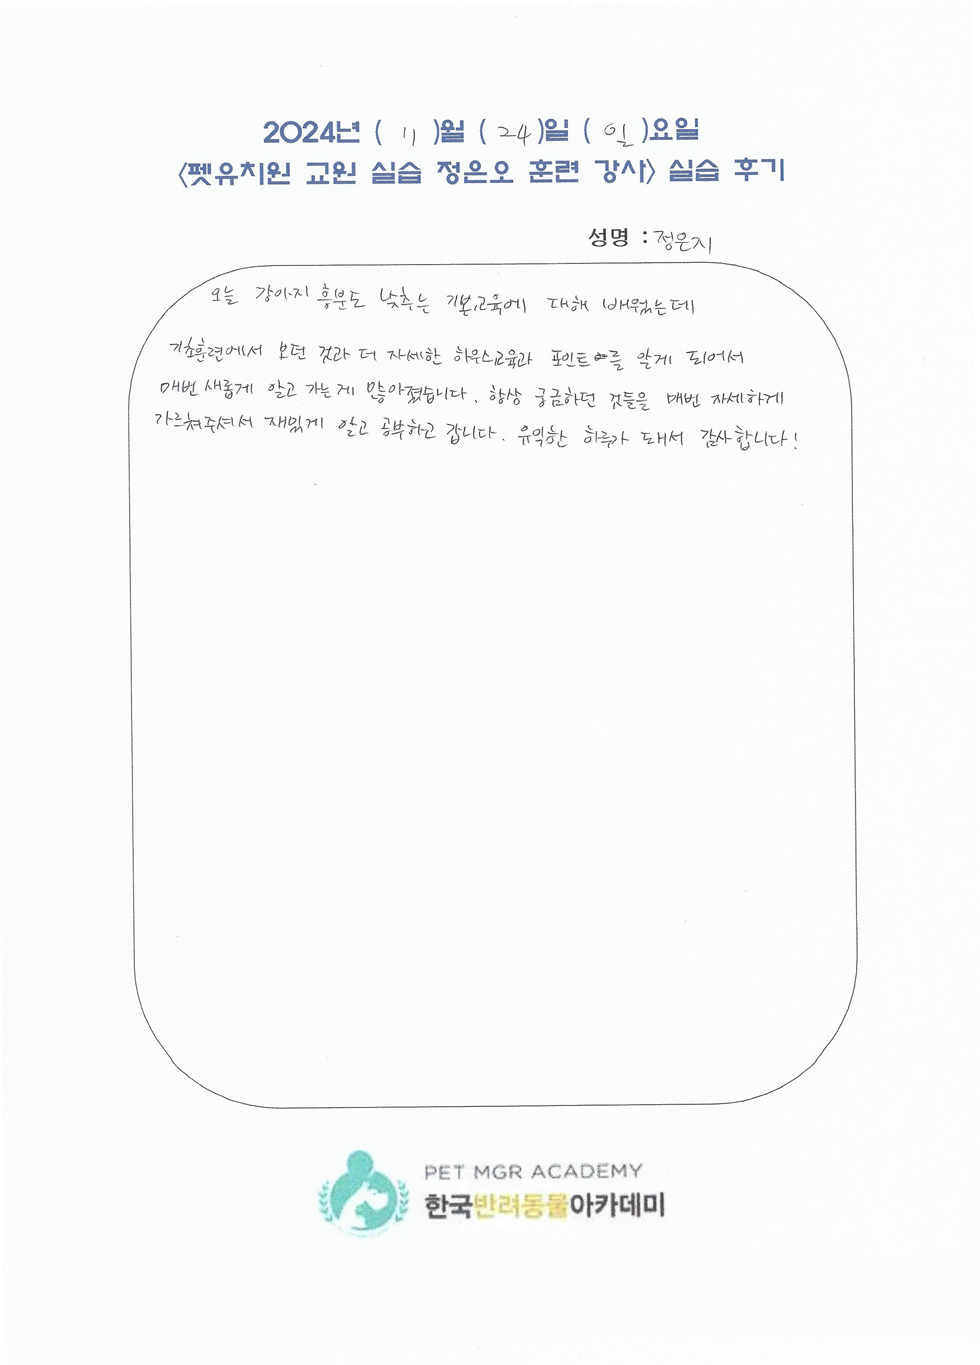 2024년 ( 11 )월 ( 24 )일 ( 일 )요일
<펫유치원 교원 실습 정은오 훈련 강사> 실습 후기
성명 : 정은지
오늘 강아지 흥분도 낮추는 기본교육에 대해 배웠는데
기초훈련에서 보던 것과 더 자세한 하우스교육과 포인트를 알게 되어서
매번 새롭게 알고 가는게 많아졌습니다. 항상 궁금하던 것들을 매번 자세하게
가르쳐주셔서 재밌게 알고 공부하고 갑니다. 유익한 하루가 돼서 감사합니다!
PET MGR ACADEMY
한국반려동물아카데미